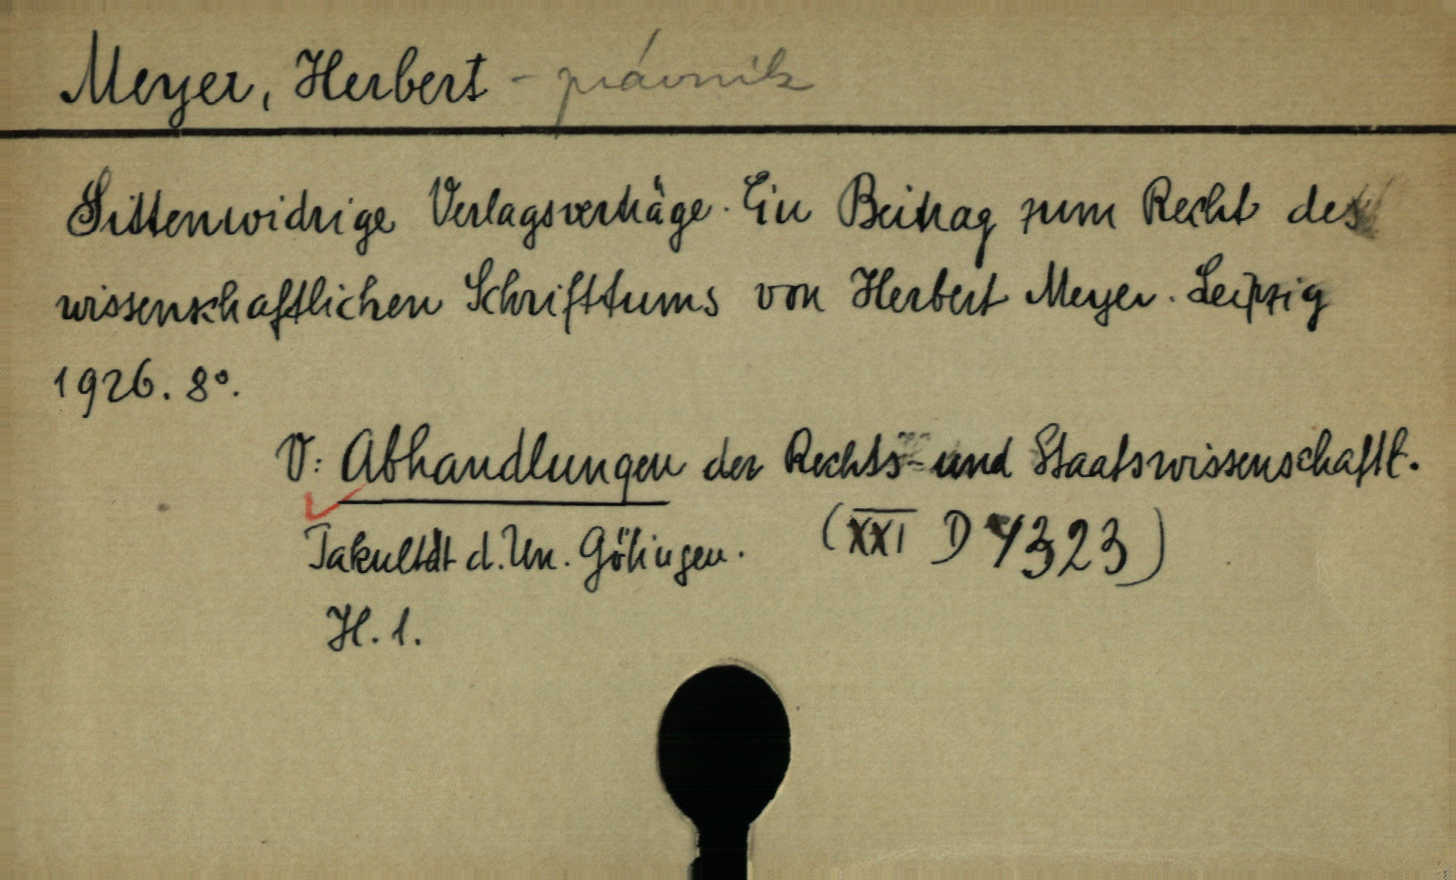 Meyer, Herbert - právník
Sittenwidrige Verlagsverträge. Ein Beitrag zum Recht des
wissenschaftlichen Schrifttums von Herbert Meyer. Leipzig
1926. 8°.
V: Abhandlungen der Rechts- und Staatswissenschaftl.
Fakultät d. Un. Götingen. (XXI D 4323)
H. 1.